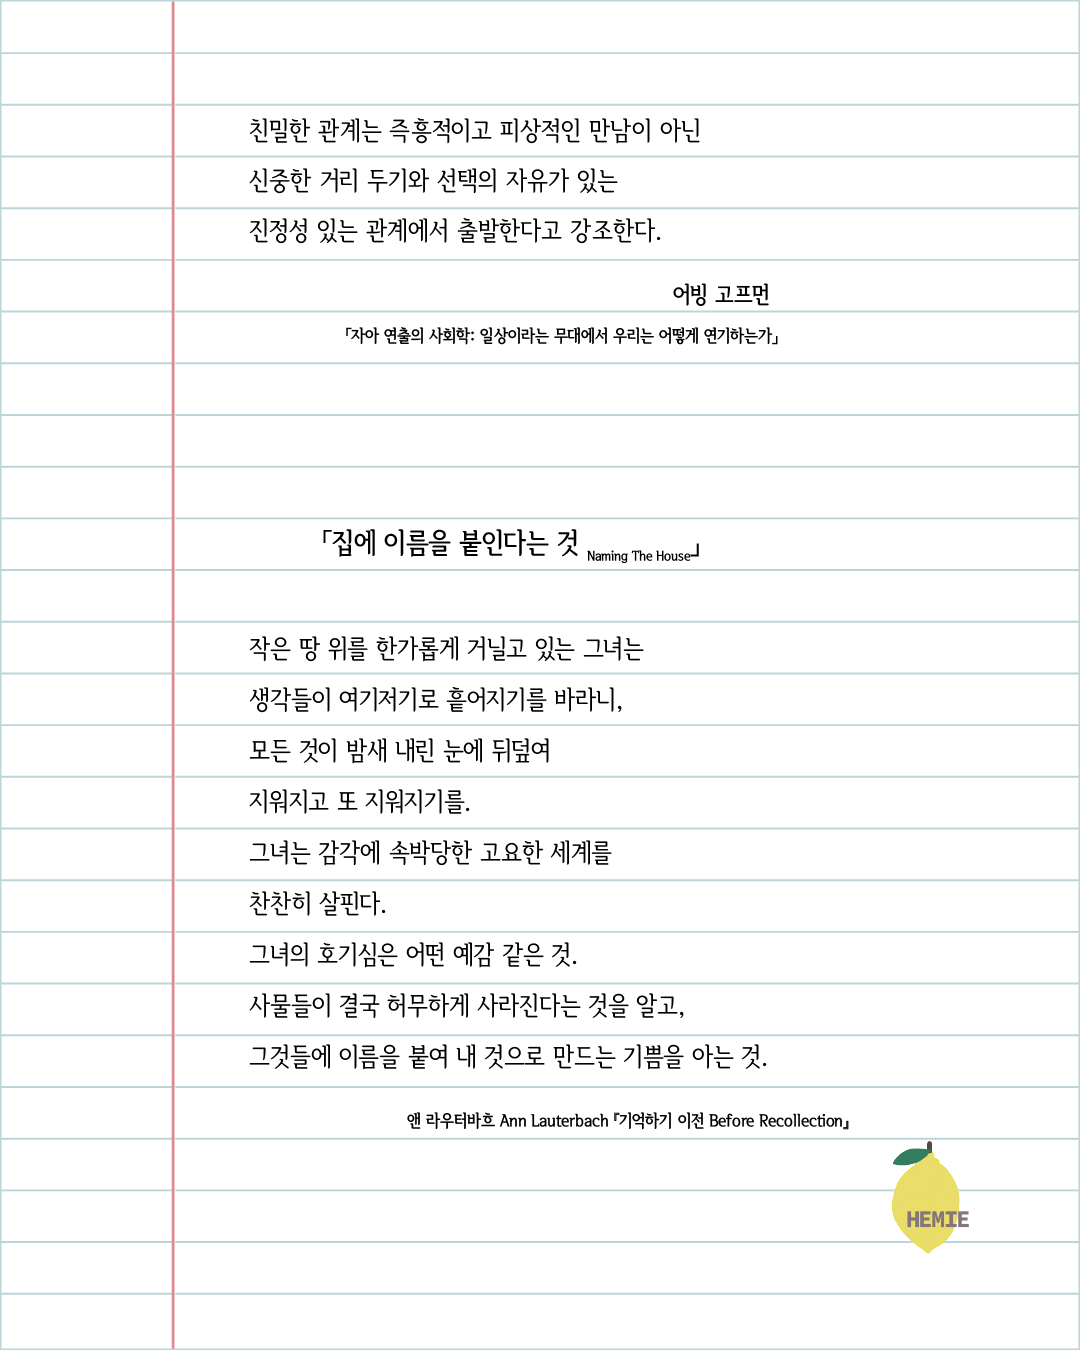 친밀한 관계는 즉흥적이고 피상적인 만남이 아닌
신중한 거리 두기와 선택의 자유가 있는
진정성 있는 관계에서 출발한다고 강조한다.
어빙 고프먼
「자아 연출의 사회학: 일상이라는 무대에서 우리는 어떻게 연기하는가」
「집에 이름을 붙인다는 것 Naming The House」
작은 땅 위를 한가롭게 거닐고 있는 그녀는
생각들이 여기저기로 흩어지기를 바라니,
모든 것이 밤새 내린 눈에 뒤덮여
지워지고 또 지워지기를.
그녀는 감각에 속박당한 고요한 세계를
찬찬히 살핀다.
그녀의 호기심은 어떤 예감 같은 것.
사물들이 결국 허무하게 사라진다는 것을 알고,
그것들에 이름을 붙여 내 것으로 만드는 기쁨을 아는 것.
앤 라우터바흐 Ann Lauterbach 『기억하기 이전 Before Recollection』
HEMIE